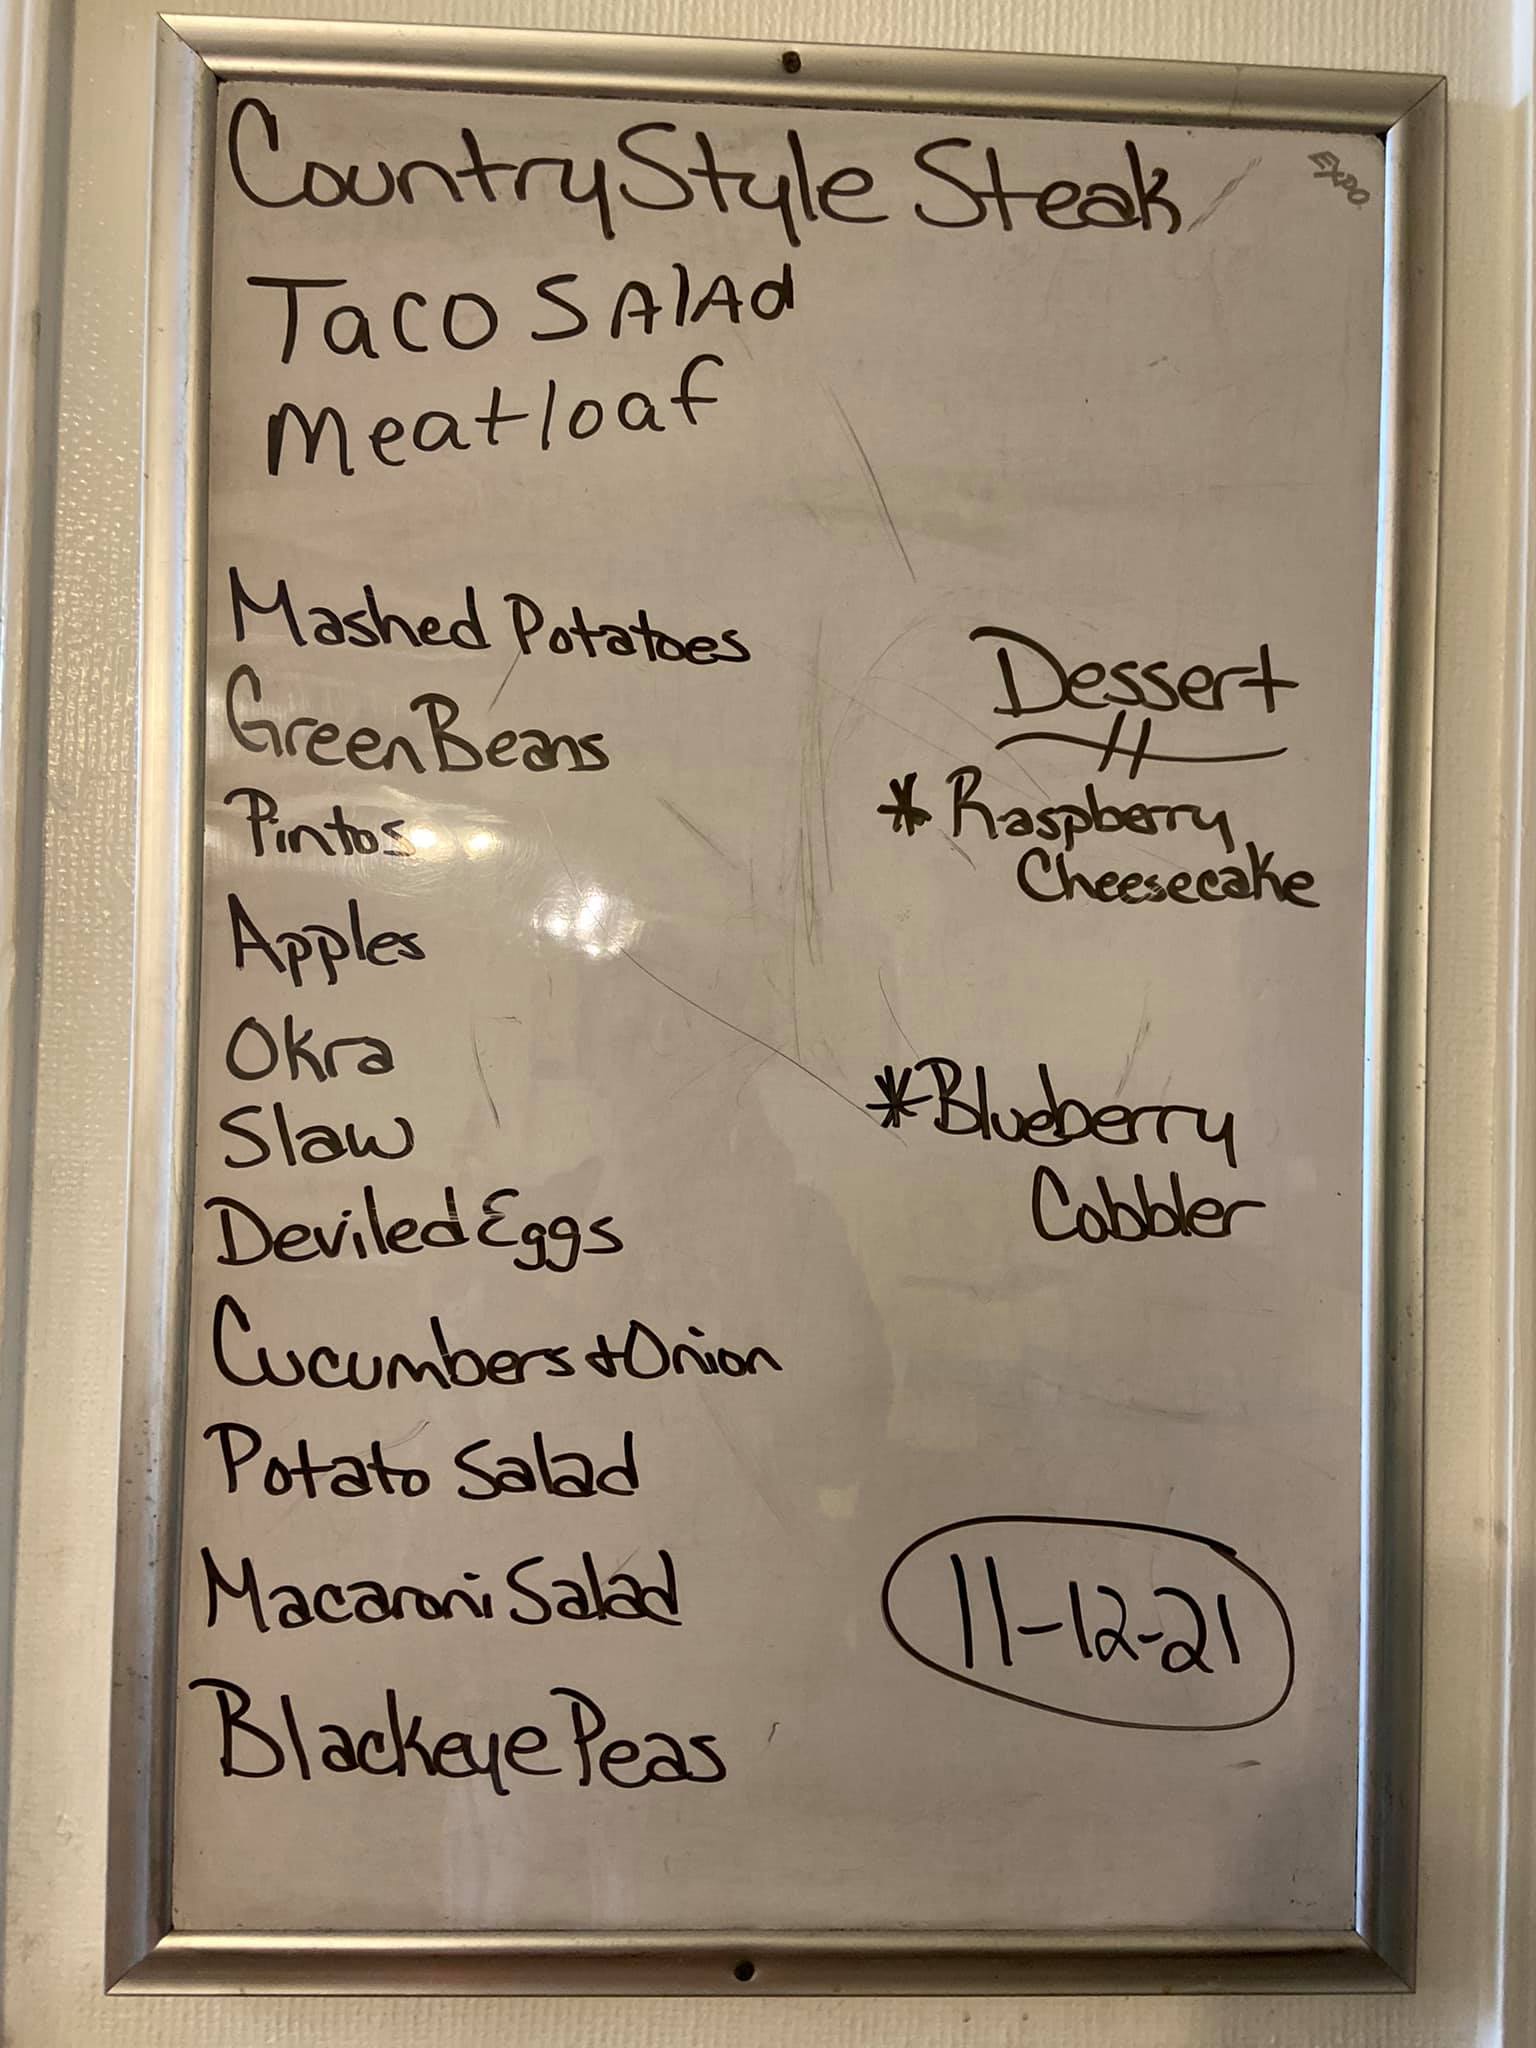 Country Style Steak
EXPO
Taco SAlAd
Meatloaf
Mashed Potatoes
Green Beans
Pintos
Apples
Okra
Slaw
Deviled Eggs
Cucumbers + Onion
Potato Salad
Macaroni Salad
Blackeye Peas
Dessert
* Raspberry
Cheesecake
* Blueberry
Cobbler
11-12-21